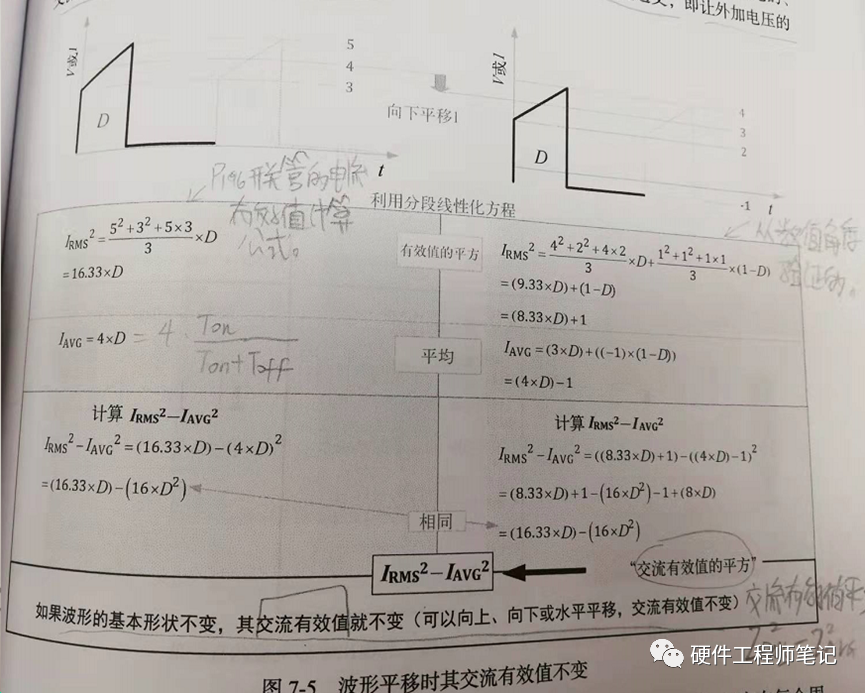 即让外加电压的
V或A
5
4
3
D
t
向下平移1
V或I
4
3
2
D
-1
t
P196 开关管的电流
有效值计算
公式。
利用分段线性化方程
从数值角度
验证的。
I_RMS² = (5²+3²+5×3)/3 ×D
=16.33×D
有效值的平方
I_RMS² = (4²+2²+4×2)/3 ×D+ (1²+1²+1×1)/3 ×(1-D)
=(9.33×D)+(1-D)
=(8.33×D)+1
I_AVG =4×D = 4 · Ton/(Ton+Toff)
平均
I_AVG =(3×D)+((-1)×(1-D))
=(4×D)-1
计算 I_RMS²-I_AVG²
I_RMS²-I_AVG²=(16.33×D)-(4×D)²
=(16.33×D)-(16×D²)
计算 I_RMS²-I_AVG²
I_RMS²-I_AVG²=((8.33×D)+1)-((4×D)-1)²
=(8.33×D)+1-(16×D²)-1+(8×D)
=(16.33×D)-(16×D²)
相同
I_RMS²-I_AVG²
“交流有效值的平方”
如果波形的基本形状不变，其交流有效值就不变（可以向上、向下或水平平移，交流有效值不变）
交流有效值平
图 7-5 波形平移时其交流有效值不变
硬件工程师笔记